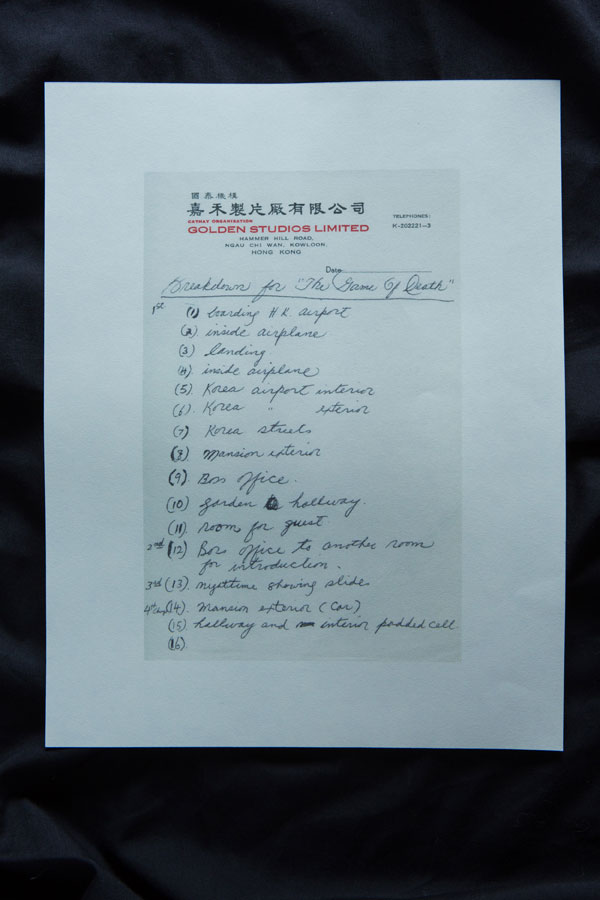 國泰機構
嘉禾製片廠有限公司
CATHAY ORGANISATION
GOLDEN STUDIOS LIMITED
HAMMER HILL ROAD,
NGAU CHI WAN, KOWLOON,
HONG KONG
TELEPHONES:
K-202221-3
Date
Breakdown for "The Game Of Death"
1st (1) boarding H K. airport
(2) inside airplane.
(3) landing
(4) inside airplane
(5) Korea airport interior
(6) Korea " exterior
(7) Korea streets
(8) Mansion exterior
(9) Boss office.
(10) garden hallway.
(11) room for guest
2nd (12) Boss office to another room
for introduction.
3rd (13) nighttime showing slide
(14) Mansion exterior (Car)
(15) hallway and interior padded cell
(16)